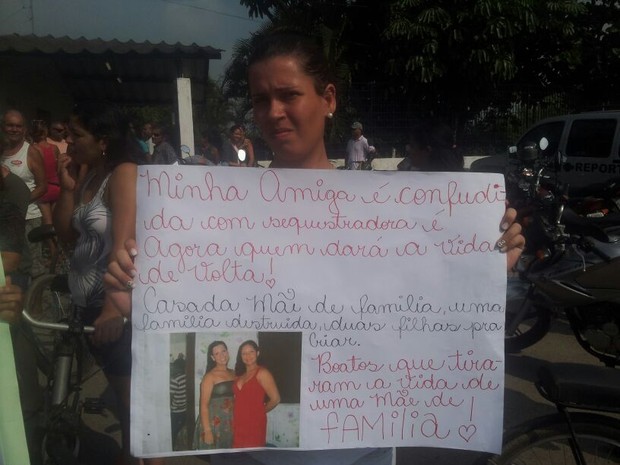 Minha Amiga é confudi-
da com sequestradora é
Agora quem dará a vida
de volta!
Casada Mãi de familia, uma
familia destruida, duas filhas pra
criar.
Boatos que tira-
ram a vida de
uma Mãe de
FAMILIA!
REPORT